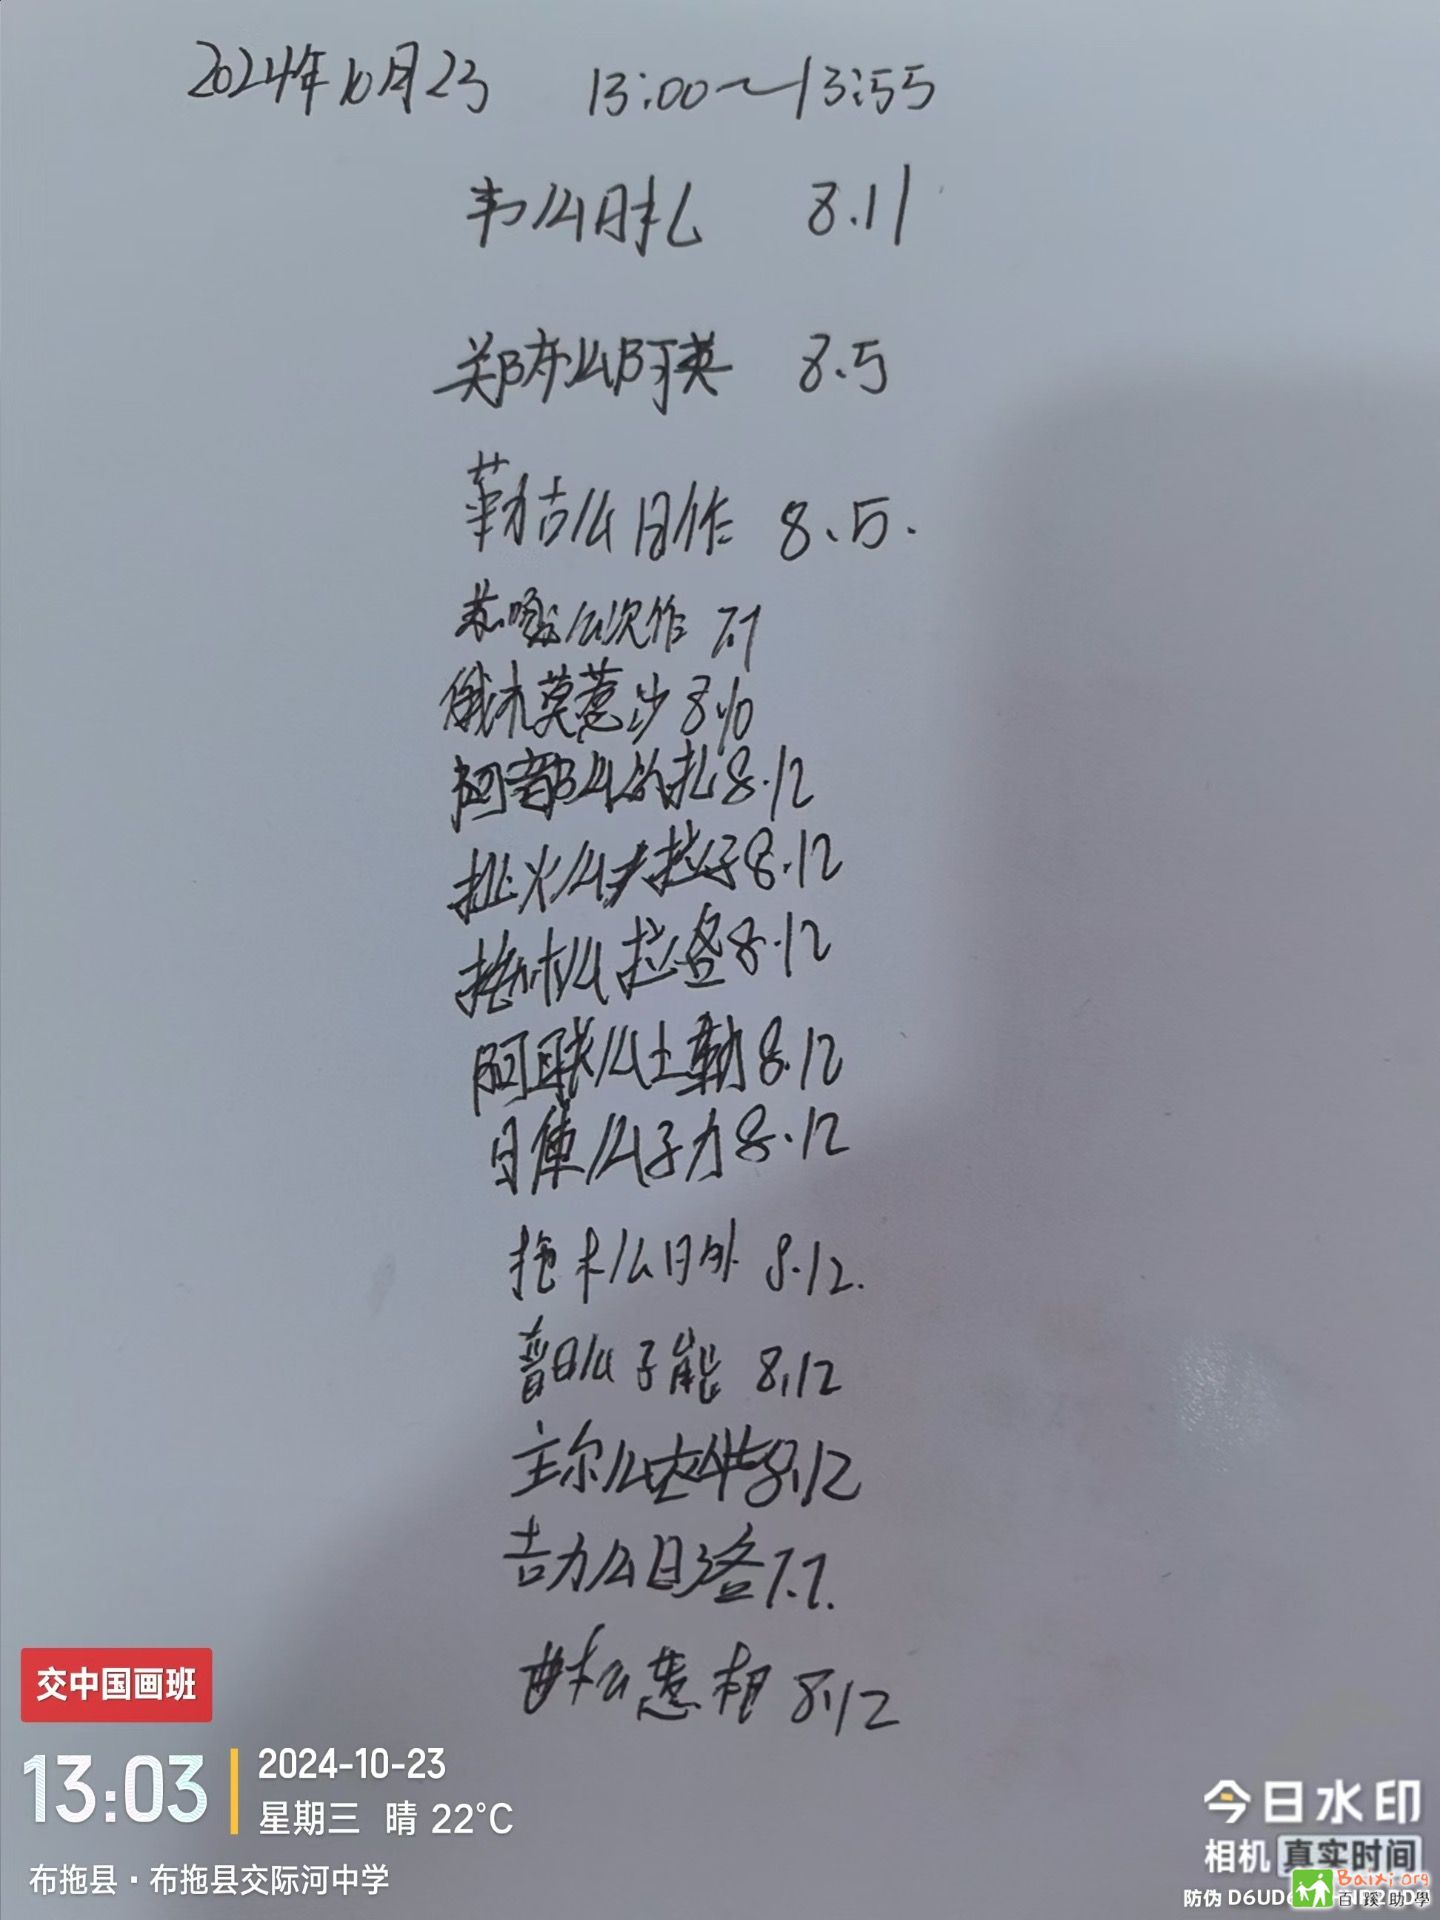 2024年10月23 13:00~13:55
韦么日扎 8.11
郑布么阿英 8.5
勒古么日作 8.5.
苏嘎么次作 7.1
俄木莫惹沙 8.10
阿都么的扎 8.12
火么 拉子 8.12
么拉 8.12
阿联么土勒 8.12
日库么子力 8.12
拖木么日外 8.12.
普日么子能 8.12
主尔么达 8.12
吉力么日洛 7.7.
曲木么惹相 8.12
交中国画班
13:03
2024-10-23
星期三 晴 22°C
布拖县·布拖县交际河中学
今日水印
相机 真实时间
防伪
Baixi.org
百蹊助學